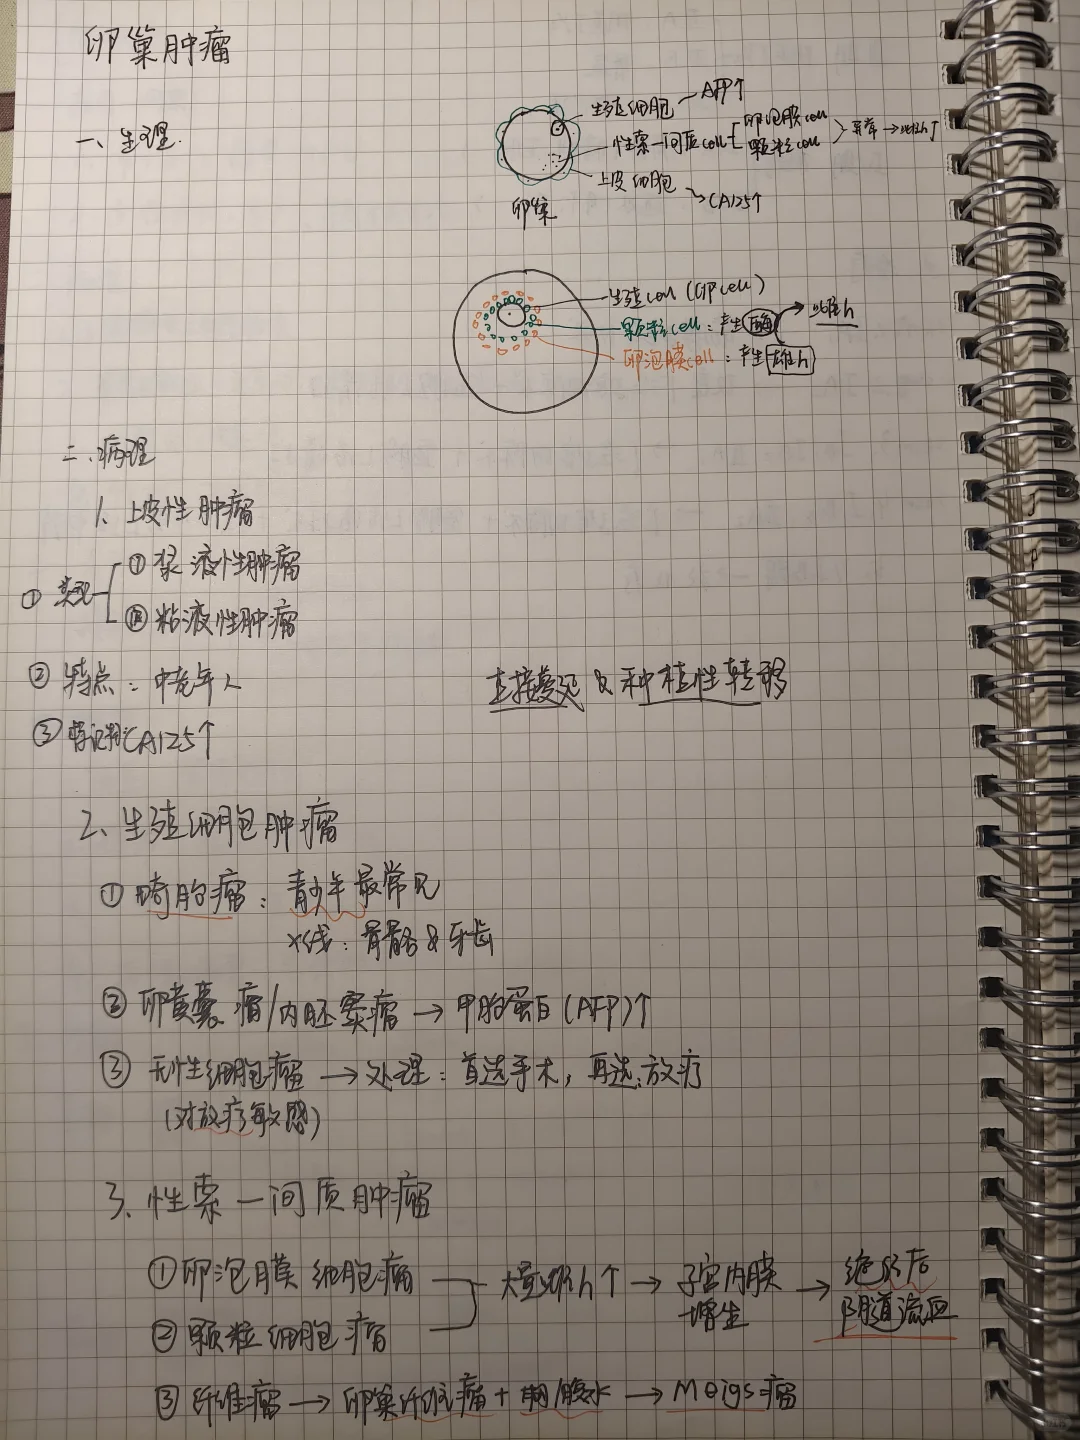 卵巢肿瘤
一、生理.
生殖细胞 AFP↑
性索一间质cell 卵泡膜cell 颗粒cell 异常→雌h↑
上皮细胞 CA125↑
卵巢
生殖cell(GP cell)
颗粒cell：产生酶 雌h
卵泡膜cell：产生雄h
二、病理
1、上皮性肿瘤
① 类型 ① 浆液性肿瘤
② 粘液性肿瘤
② 特点：中老年人 直接蔓延&种植性转移
③ 标记物CA125↑
2、生殖细胞肿瘤
① 畸胎瘤：青少年最常见
X线：骨骼&牙齿
② 卵黄囊瘤/内胚窦瘤→甲胎蛋白(AFP)↑
③ 无性细胞瘤→处理：首选手术，再选:放疗
(对放疗敏感)
3、性索一间质肿瘤
①卵泡膜细胞瘤 大量雌h↑→子宫内膜增生→绝经后阴道流血
②颗粒细胞瘤
③纤维瘤→卵巢纤维瘤+胸/腹水→Meigs瘤